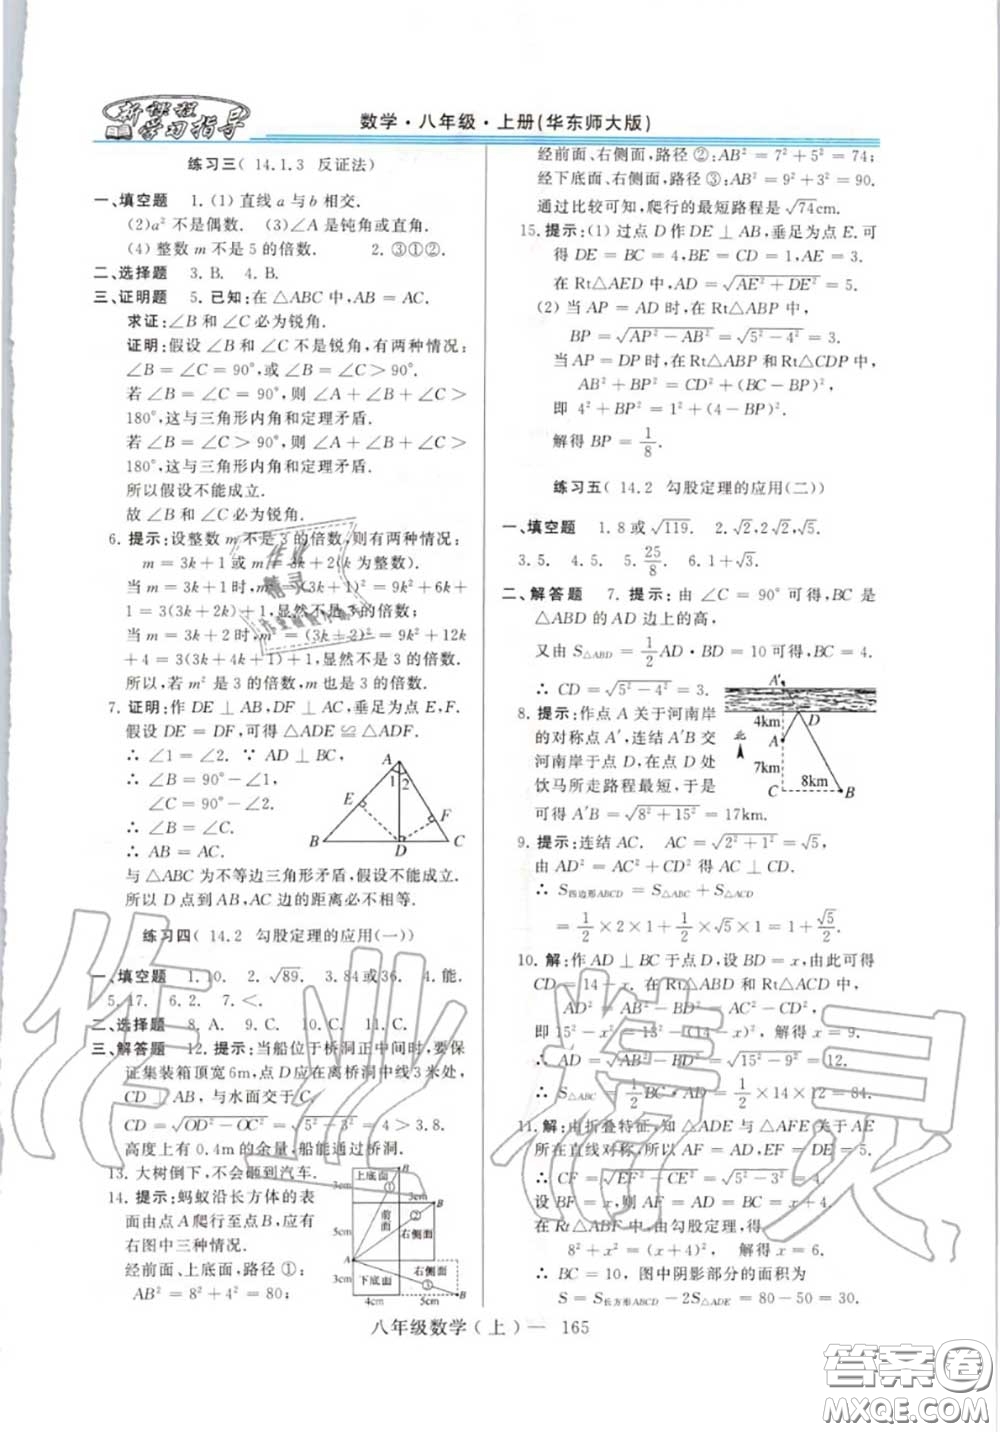 新课程
学习指导
数学·八年级·上册(华东师大版)
练习三(14.1.3 反证法)
一、填空题 1.(1)直线a与b相交.
(2)a²不是偶数. (3)∠A是钝角或直角.
(4)整数m不是5的倍数. 2.③①②.
二、选择题 3.B. 4.B.
三、证明题 5.已知:在△ABC中,AB=AC.
求证:∠B和∠C必为锐角.
证明:假设∠B和∠C不是锐角,有两种情况:
∠B=∠C=90°,或∠B=∠C>90°.
若∠B=∠C=90°,则∠A+∠B+∠C>
180°,这与三角形内角和定理矛盾.
若∠B=∠C>90°,则∠A+∠B+∠C>
180°,这与三角形内角和定理矛盾.
所以假设不能成立.
故∠B和∠C必为锐角.
6.提示:设整数m不是3的倍数,则有两种情况:
m=3k+1或m=3k+2(k为整数).
当m=3k+1时,m²=(3k+1)²=9k²+6k+
1=3(3k²+2k)+1,显然不是3的倍数;
当m=3k+2时,m²=(3k+2)²=9k²+12k
+4=3(3k²+4k+1)+1,显然不是3的倍数.
所以,若m²是3的倍数,m也是3的倍数.
7.证明:作DE⊥AB,DF⊥AC,垂足为点E,F.
假设DE=DF,可得△ADE≌△ADF.
∴∠1=∠2. ∵AD⊥BC,
∴∠B=90°-∠1,
∠C=90°-∠2.
∴∠B=∠C.
∴AB=AC.
与△ABC为不等边三角形矛盾,假设不能成立.
所以D点到AB,AC边的距离必不相等.
A
1
2
E
F
B
D
C
练习四(14.2 勾股定理的应用(一))
一、填空题 1.10. 2.√89. 3.84或36. 4.能.
5.17. 6.2. 7.<.
二、选择题 8.A. 9.C. 10.C. 11.C.
三、解答题 12.提示:当船位于桥洞正中间时,要保
证集装箱顶宽6m,点D应在离桥洞中线3米处,
CD⊥AB,与水面交于C.
CD=√(OD²-OC²)=√(5²-3²)+4>3.8.
高度上有0.4m的余量,船能通过桥洞.
13.大树倒下,不会砸到汽车.
14.提示:蚂蚁沿长方体的表
面由点A爬行至点B,应有
右图中三种情况.
经前面、上底面,路径①:
AB²=8²+4²=80;
3cm
上底面
①
B
5cm
前面
②
右侧面
A
3cm
下底面
右侧面
③
4cm
5cm
B
经前面、右侧面,路径②:AB²=7²+5²=74;
经下底面、右侧面,路径③:AB²=9²+3²=90.
通过比较可知,爬行的最短路程是√74cm.
15.提示:(1)过点D作DE⊥AB,垂足为点E.可
得DE=BC=4,BE=CD=1,AE=3.
在Rt△AED中,AD=√(AE²+DE²)=5.
(2)当AP=AD时,在Rt△ABP中,
BP=√(AP²-AB²)=√(5²-4²)=3.
当AP=DP时,在Rt△ABP和Rt△CDP中,
AB²+BP²=CD²+(BC-BP)².
即4²+BP²=1²+(4-BP)².
解得BP=1/8.
练习五(14.2 勾股定理的应用(二))
一、填空题 1.8或√119. 2.√2,2√2,√5.
3.5. 4.5. 5.25/8. 6.1+√3.
二、解答题 7.提示:由∠C=90°可得,BC是
△ABD的AD边上的高,
又由S△ABD=1/2AD·BD=10可得,AD=5.
∴CD=√(5²-4²)=3.
8.提示:作点A关于河南岸
的对称点A′,连结A′B交
河南岸于点D,在点D处
饮马所走路程最短,于是
可得A′B=√(8²+15²)=17km.
A′
4km
D
北
A
7km
8km
C
B
9.提示:连结AC. AC=√(2²+1²)=√5,
由AD²=AC²+CD²得AC⊥CD.
∴S四边形ABCD=S△ABC+S△ACD
=1/2×2×1+1/2×√5×1=1+√5/2.
10.解:作AD⊥BC于点D,设BD=x,由此可得
CD=14-x.在Rt△ABD和Rt△ACD中,
AD²=AB²-BD²=AC²-CD².
即15²-x²=13²-(14-x)²,解得x=9.
∴AD=√(AB²-BD²)=√(15²-9²)=12.
∴S△ABC=1/2BC·AD=1/2×14×12=84.
11.解:由折叠特征,知△ADE与△AFE关于AE
所在直线对称,所以AF=AD,EF=DE=5.
∴CF=√(EF²-CE²)=√(5²-3²)=4.
设BF=x,则AF=AD=BC=x+4.
在Rt△ABF中,由勾股定理,得
8²+x²=(x+4)², 解得x=6.
∴BC=10,图中阴影部分的面积为
S=S长方形ABCD-2S△ADE=80-50=30.
八年级数学(上)— 165
作业精灵
答案圈
MXQE.COM